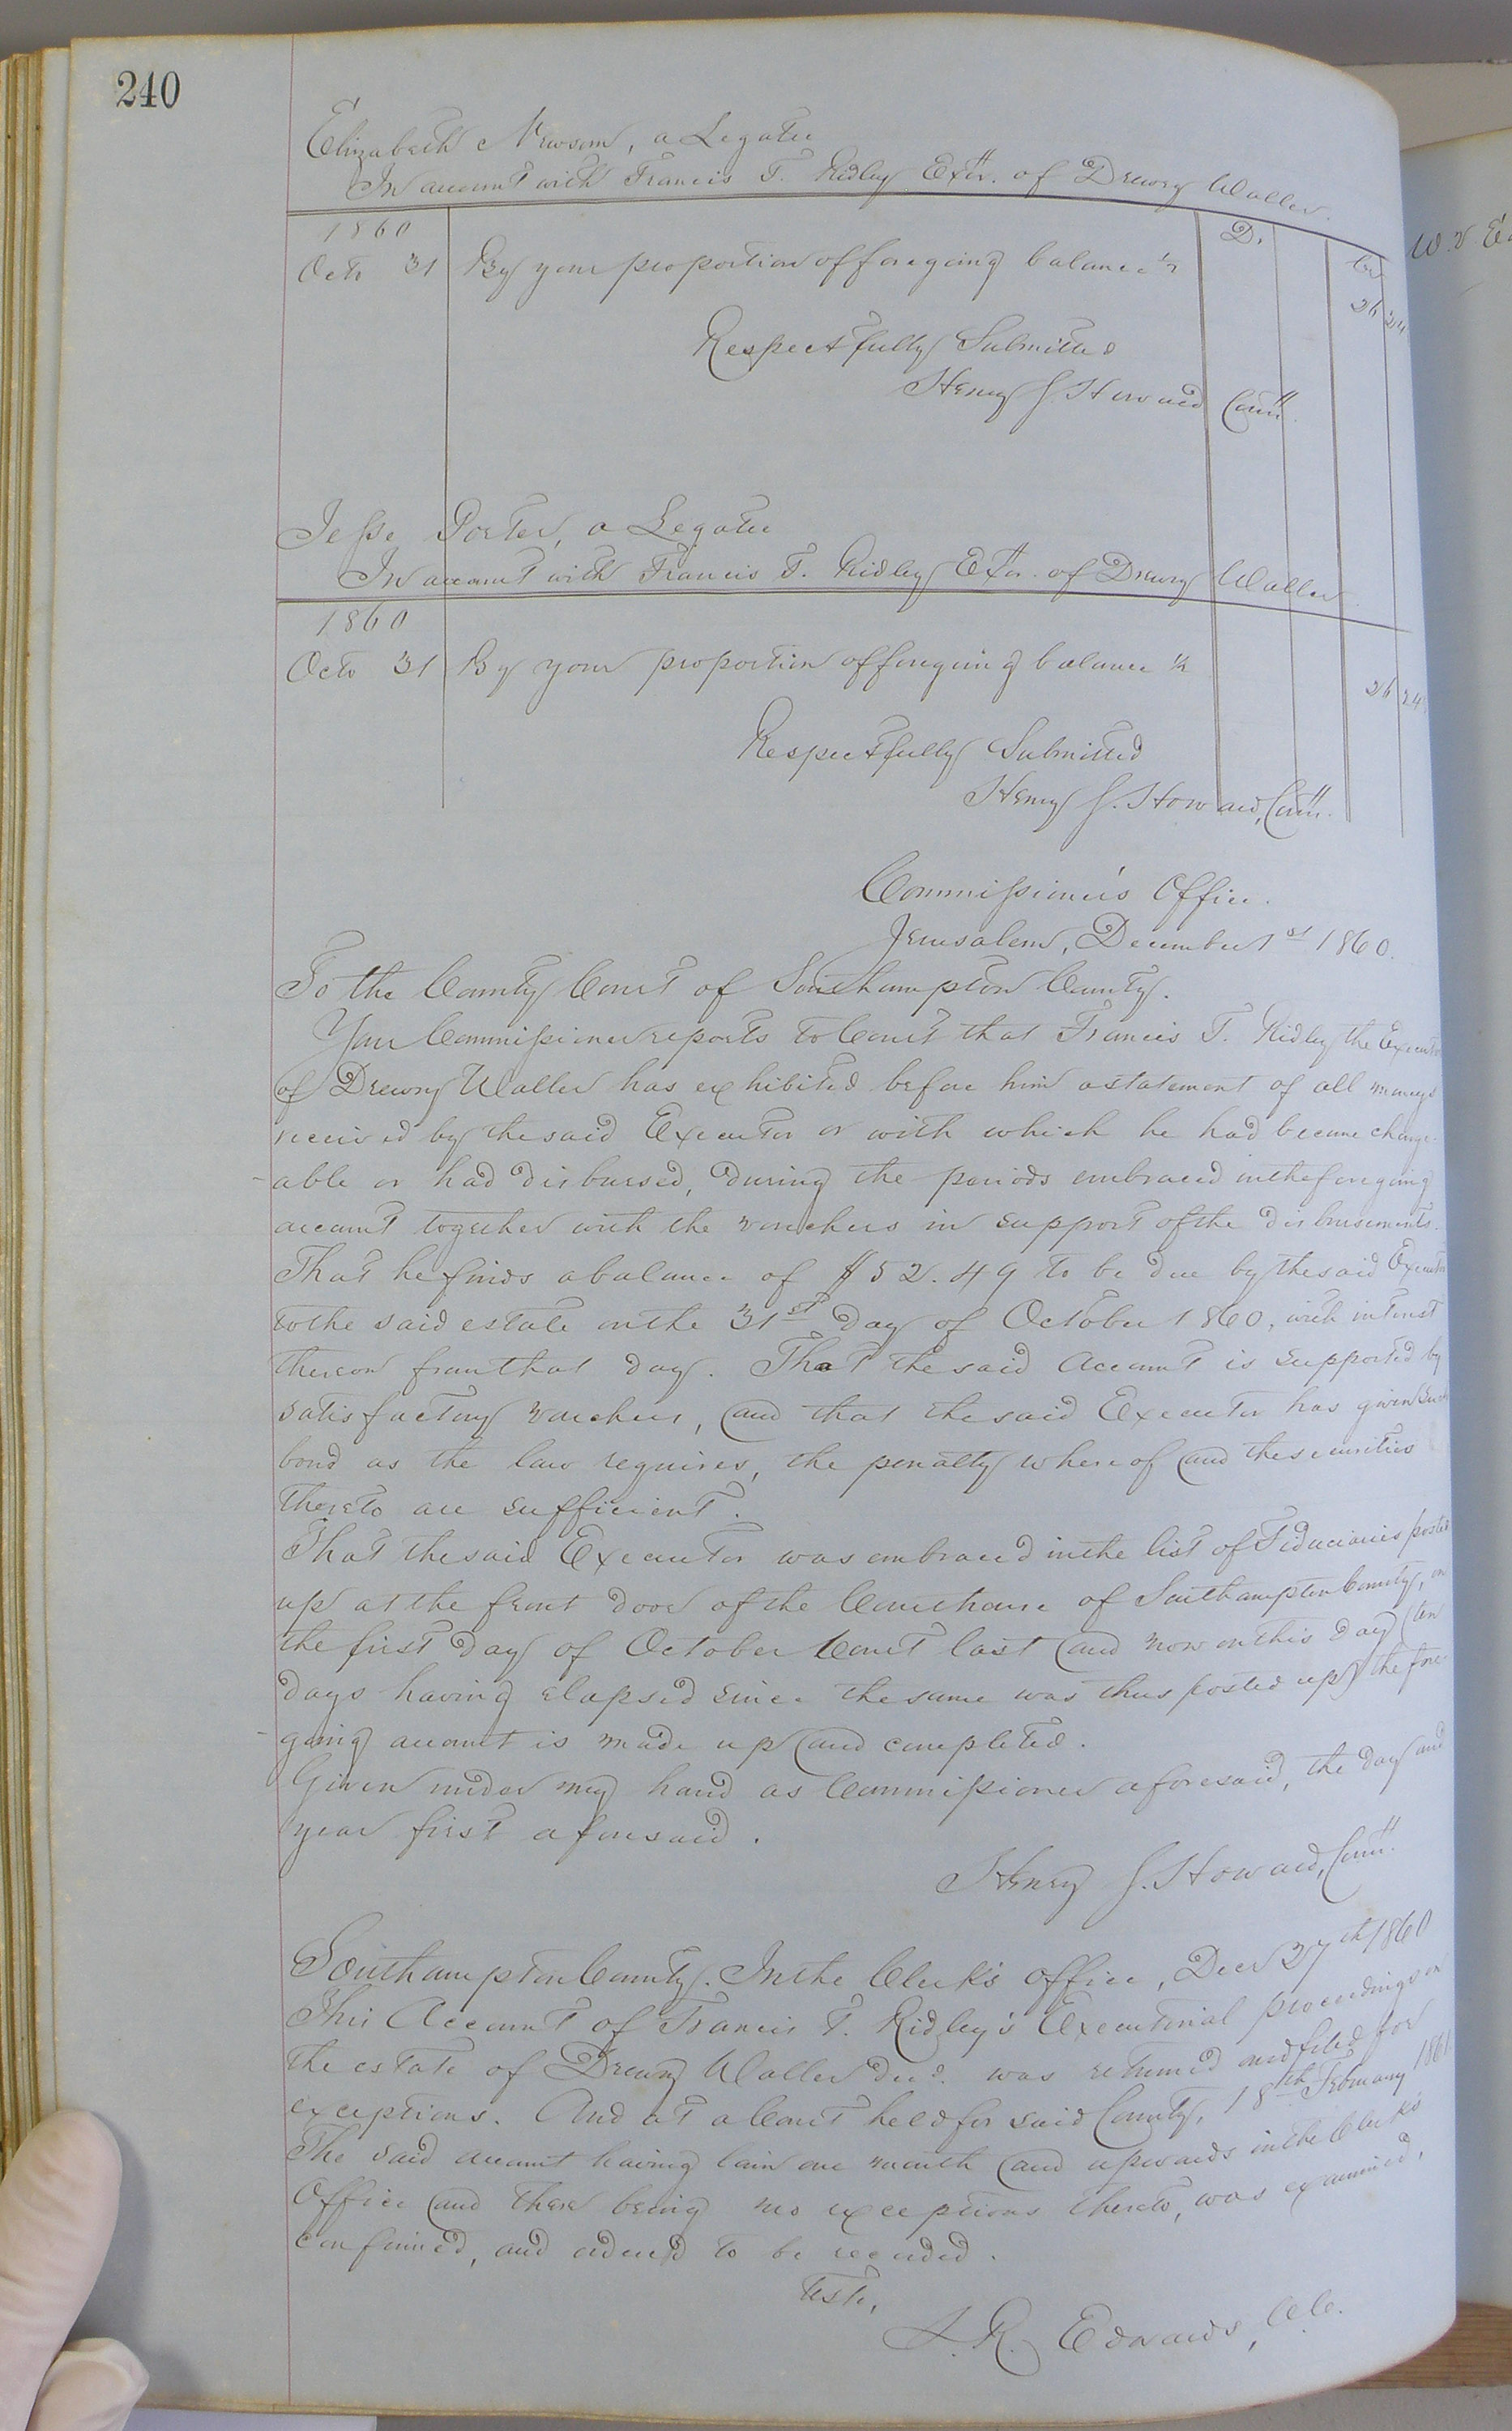 240
Elizabeth Newsom, a Legatee
In account with Francis T. Ridley Exor. of Drewry Waller.
1860
D.
Cr
Octo 31 By your proportion of foregoing balance ½ 26 24
Respectfully Submitted
Henry J. Howard Comr.
Jesse Porter, a Legatee
In account with Francis T. Ridley Exor. of Drewry Waller.
1860
Octo 31 By your proportion of foregoing balance ½ 26 24
Respectfully Submitted
Henry J. Howard, Comr.
Commissioner's Office.
Jerusalem, December 1st 1860.
To the County Court of Southampton County.
Your Commissioner reports to Court that Francis T. Ridley the Executor
of Drewry Waller has exhibited before him a statement of all moneys
received by the said Executor or with which he had become charge-
-able or had disbursed, during the periods embraced in the foregoing
account together with the vouchers in support of the disbursements.
That he finds a balance of $52.49 to be due by the said Executor
to the said estate on the 31st day of October 1860, with interest
thereon from that day. That the said Account is supported by
satisfactory vouchers, and that the said Executor has given such
bond as the law requires, the penalty whereof and the securities
thereto are sufficient.
That the said Executor was embraced in the list of Fiduciaries posted
up at the front door of the Courthouse of Southampton County, on
the first day of October Court last and now on this day (ten
days having elapsed since the same was thus posted up) the fore
-going account is made up and completed.
Given under my hand as Commissioner aforesaid, the day and
year first aforesaid.
Henry J. Howard, Comr.
Southampton County. In the Clerk's office, Decr 27th 1860
This Account of Francis T. Ridley's Executorial proceedings on
the estate of Drewry Waller decd. was returned and filed for
exceptions. And at a Court held for said County, 18th February 1861
The said account having lain one month and upwards in the Clerk's
Office and there being no exceptions thereto, was examined,
confirmed, and ordered to be recorded.
Teste,
L. R. Edwards, C.C.
W. T. E